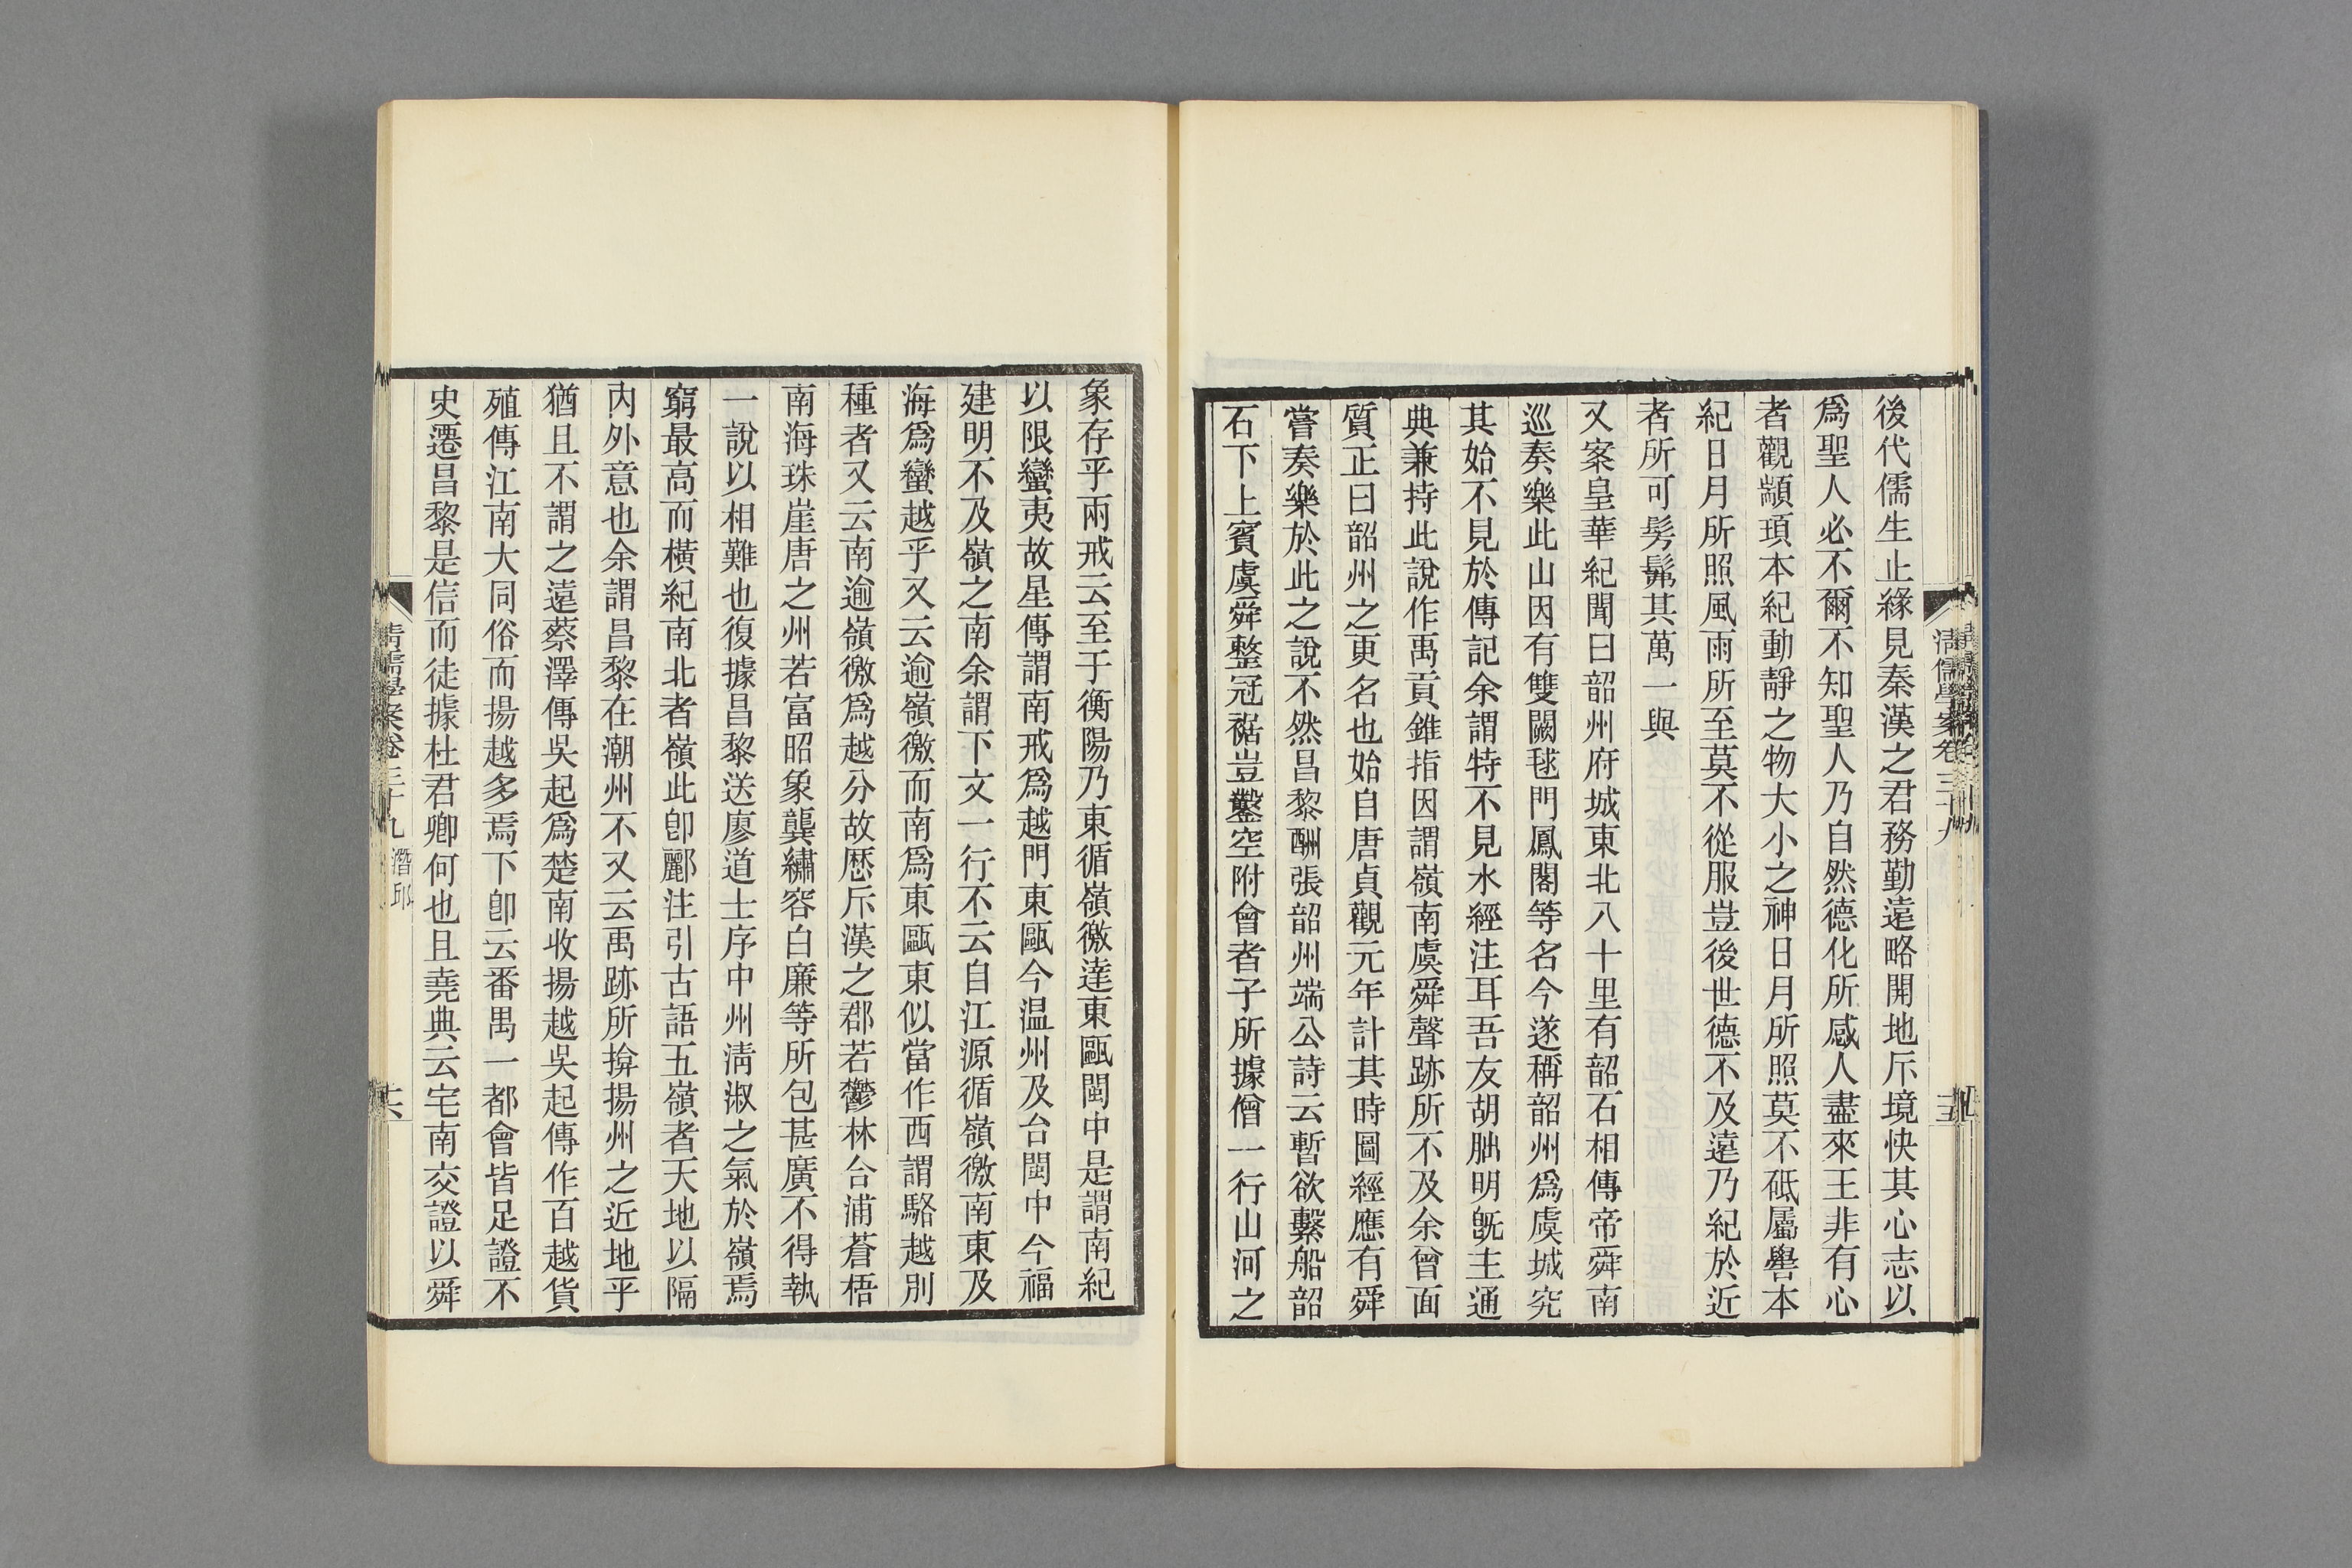 清儒學案卷三十九
後代儒生止緣見秦漢之君務勤遠略開地斥境快其心志以
爲聖人必不爾不知聖人乃自然德化所感人盡來王非有心
者觀顓頊本紀動靜之物大小之神日月所照莫不砥屬嚳本
紀日月所照風雨所至莫不從服豈後世德不及遠乃紀於近
者所可髣髴其萬一與
又案皇華紀聞曰韶州府城東北八十里有韶石相傳帝舜南
巡奏樂此山因有雙闕毬門鳳閣等名今遂稱韶州爲虞城究
其始不見於傳記余謂特不見水經注耳吾友胡朏明旣主通
典兼持此說作禹貢錐指因謂嶺南虞舜聲跡所不及余曾面
質正曰韶州之更名也始自唐貞觀元年計其時圖經應有舜
嘗奏樂於此之說不然昌黎酬張韶州端公詩云暫欲繫船韶
石下上賓虞舜整冠裾豈鑿空附會者子所據僧一行山河之
象存乎兩戒云至于衡陽乃東循嶺徼達東甌閩中是謂南紀
以限蠻夷故星傳謂南戒爲越門東甌今温州及台閩中今福
建明不及嶺之南余謂下文一行不云自江源循嶺徼南東及
海爲蠻越乎又云逾嶺徼而南爲東甌東似當作西謂駱越別
種者又云南逾嶺徼爲越分故歷斥漢之郡若鬱林合浦蒼梧
南海珠崖唐之州若富昭象龔繡容白廉等所包甚廣不得執
一說以相難也復據昌黎送廖道士序中州淸淑之氣於嶺焉
窮最高而橫紀南北者嶺此卽酈注引古語五嶺者天地以隔
內外意也余謂昌黎在潮州不又云禹跡所揜揚州之近地乎
猶且不謂之遠蔡澤傳吳起爲楚南收揚越吳起傳作百越貨
殖傳江南大同俗而揚越多焉下卽云番禺一都會皆足證不
史遷昌黎是信而徒據杜君卿何也且堯典云宅南交證以舜
清儒學案卷三十九 潛邱
六